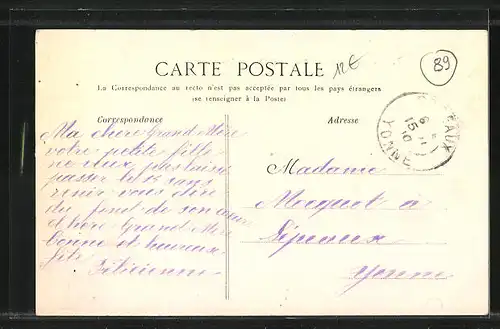 12€
89
CARTE POSTALE
La Correspondance au recto n'est pas acceptée par tous les pays étrangers
(se renseigner à la Poste)
Correspondance
Adresse
EAUX
YONNE
Ma chere Grand Mère
votre petite fille
ne veux pas laisser
passer le 15 sans
venir vous dire
du fond de son cœur
chere Grand Mère
bonne et heureuse
fête
Félicienne
Madame
Mocquet à
Sépeaux
Yonne